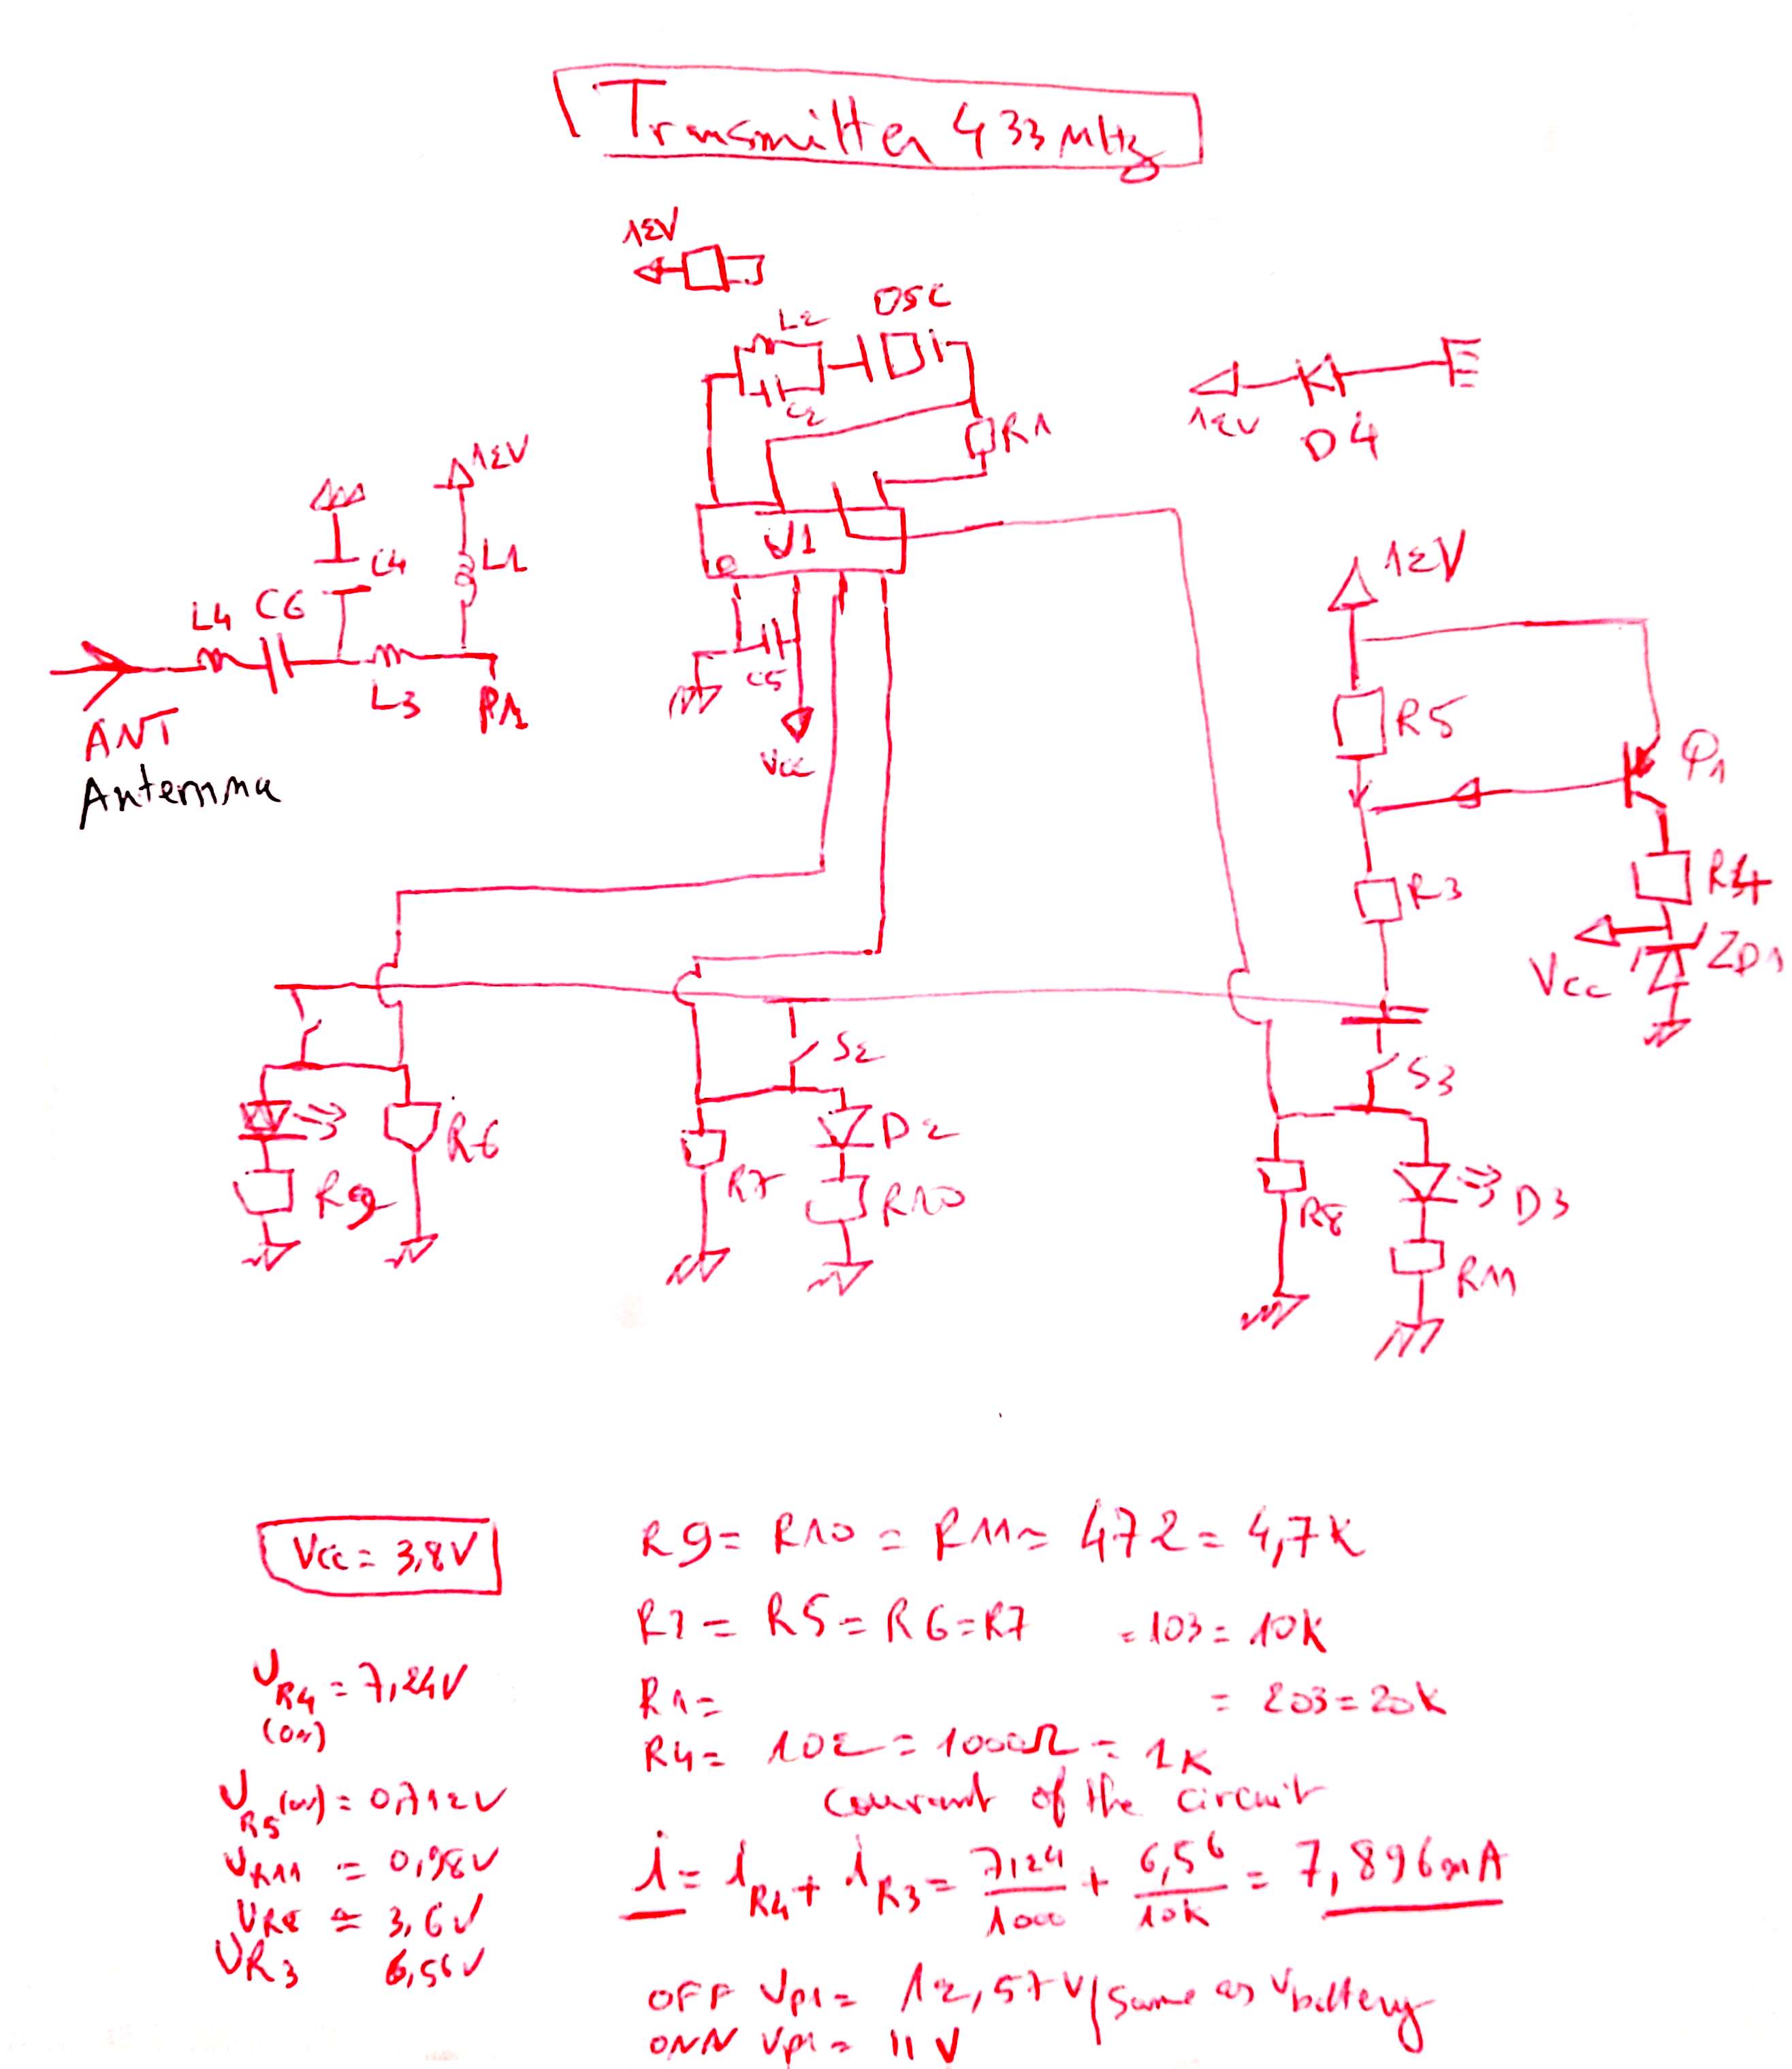 Transmitter 433 MHz
12V
OSC
L2
C2
R1
12V
D4
12V
L1
C4
L4 C6
L3
ANT
Antemna
U1
C5
Vcc
12V
R5
Q1
R3
R4
Vcc
ZD1
S2
S3
R6
R9
R7
D2
R10
R8
D3
R11
Vcc = 3,8V
UR4 = 7,24V
(on)
UR5(on) = 0,712V
UR11 = 0,98V
UR8 = 3,6V
UR3 6,56V
R9 = R10 = R11 = 472 = 4,7K
R3 = R5 = R6 = R7 = 103 = 10K
R1 = = 203 = 20K
R4 = 102 = 1000Ω = 1K
courant of the circuit
i = iR4 + iR3 = 7,24/1000 + 6,56/10K = 7,896mA
OFF Vp1 = 12,57V / same as Vbattery
ONN Vp1 = 11V